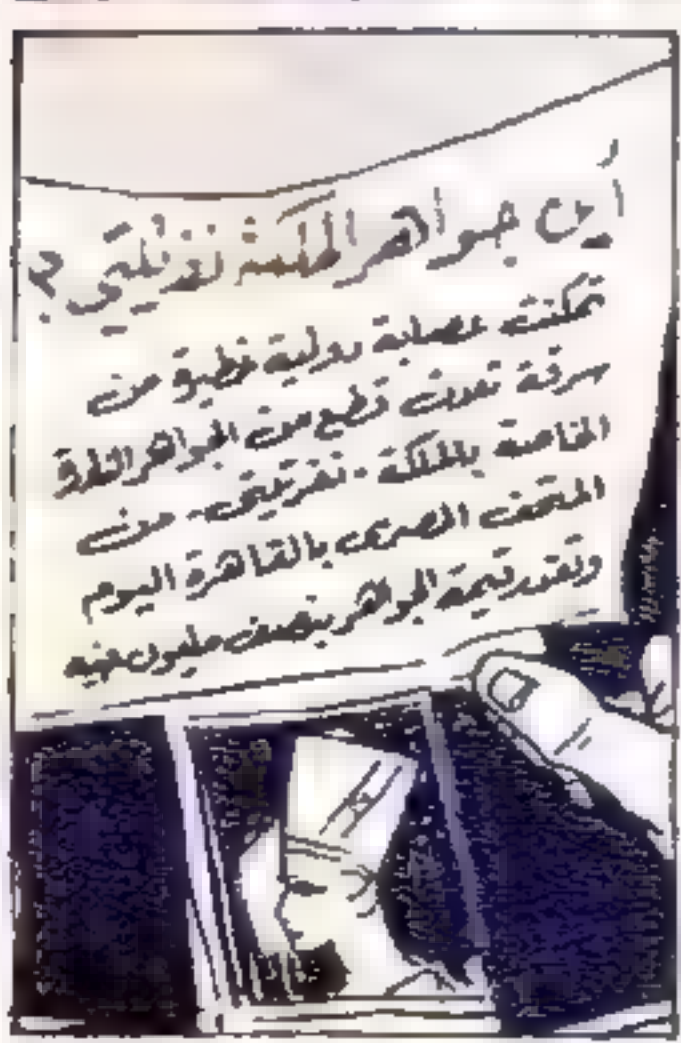 أين جواهر الملكة نفرتيتي ؟
تمكنت عصابة دولية خطيرة من
سرقة ثلاث قطع من الجواهر النادرة
الخاصة بالملكة - نفرتيتى - من
المتحف المصرى بالقاهرة اليوم
وتقدر قيمة الجواهر بنصف مليون جنيه